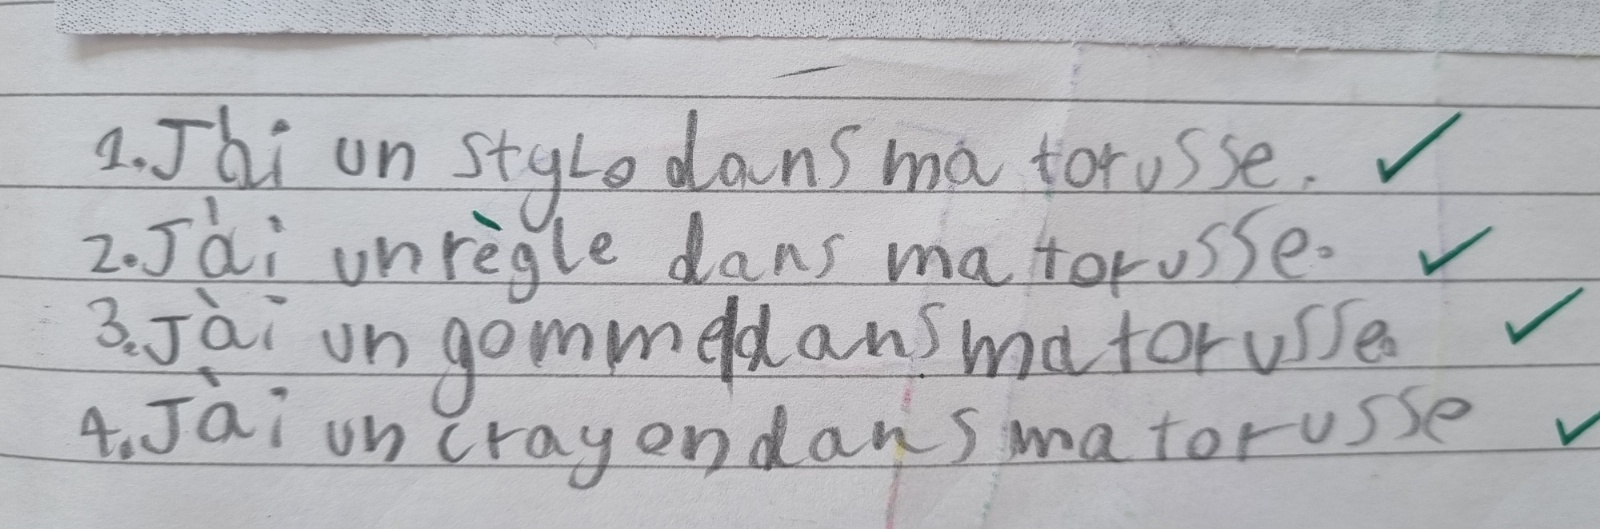 1. J'ai un stylo dans ma torusse.
2. J'ai un règle dans ma torusse.
3. J'ai un gomme dans ma torusse.
4. J'ai un crayon dans ma torusse